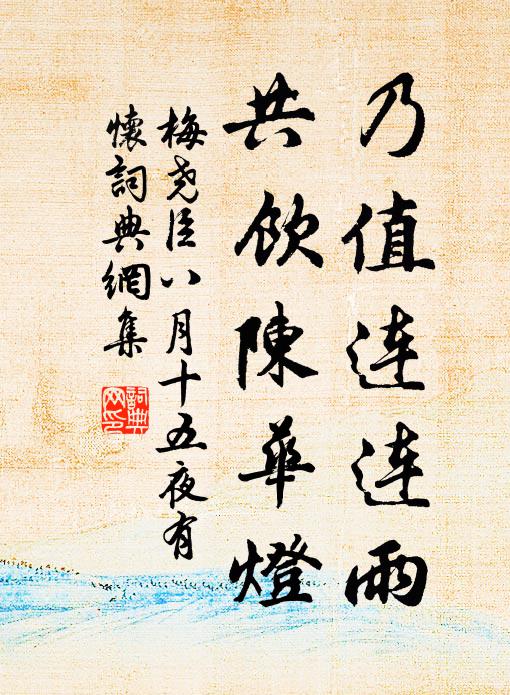 乃值连连雨
共飲陳華燈
梅堯臣八月十五夜有
懷詞典網集
詞典网印